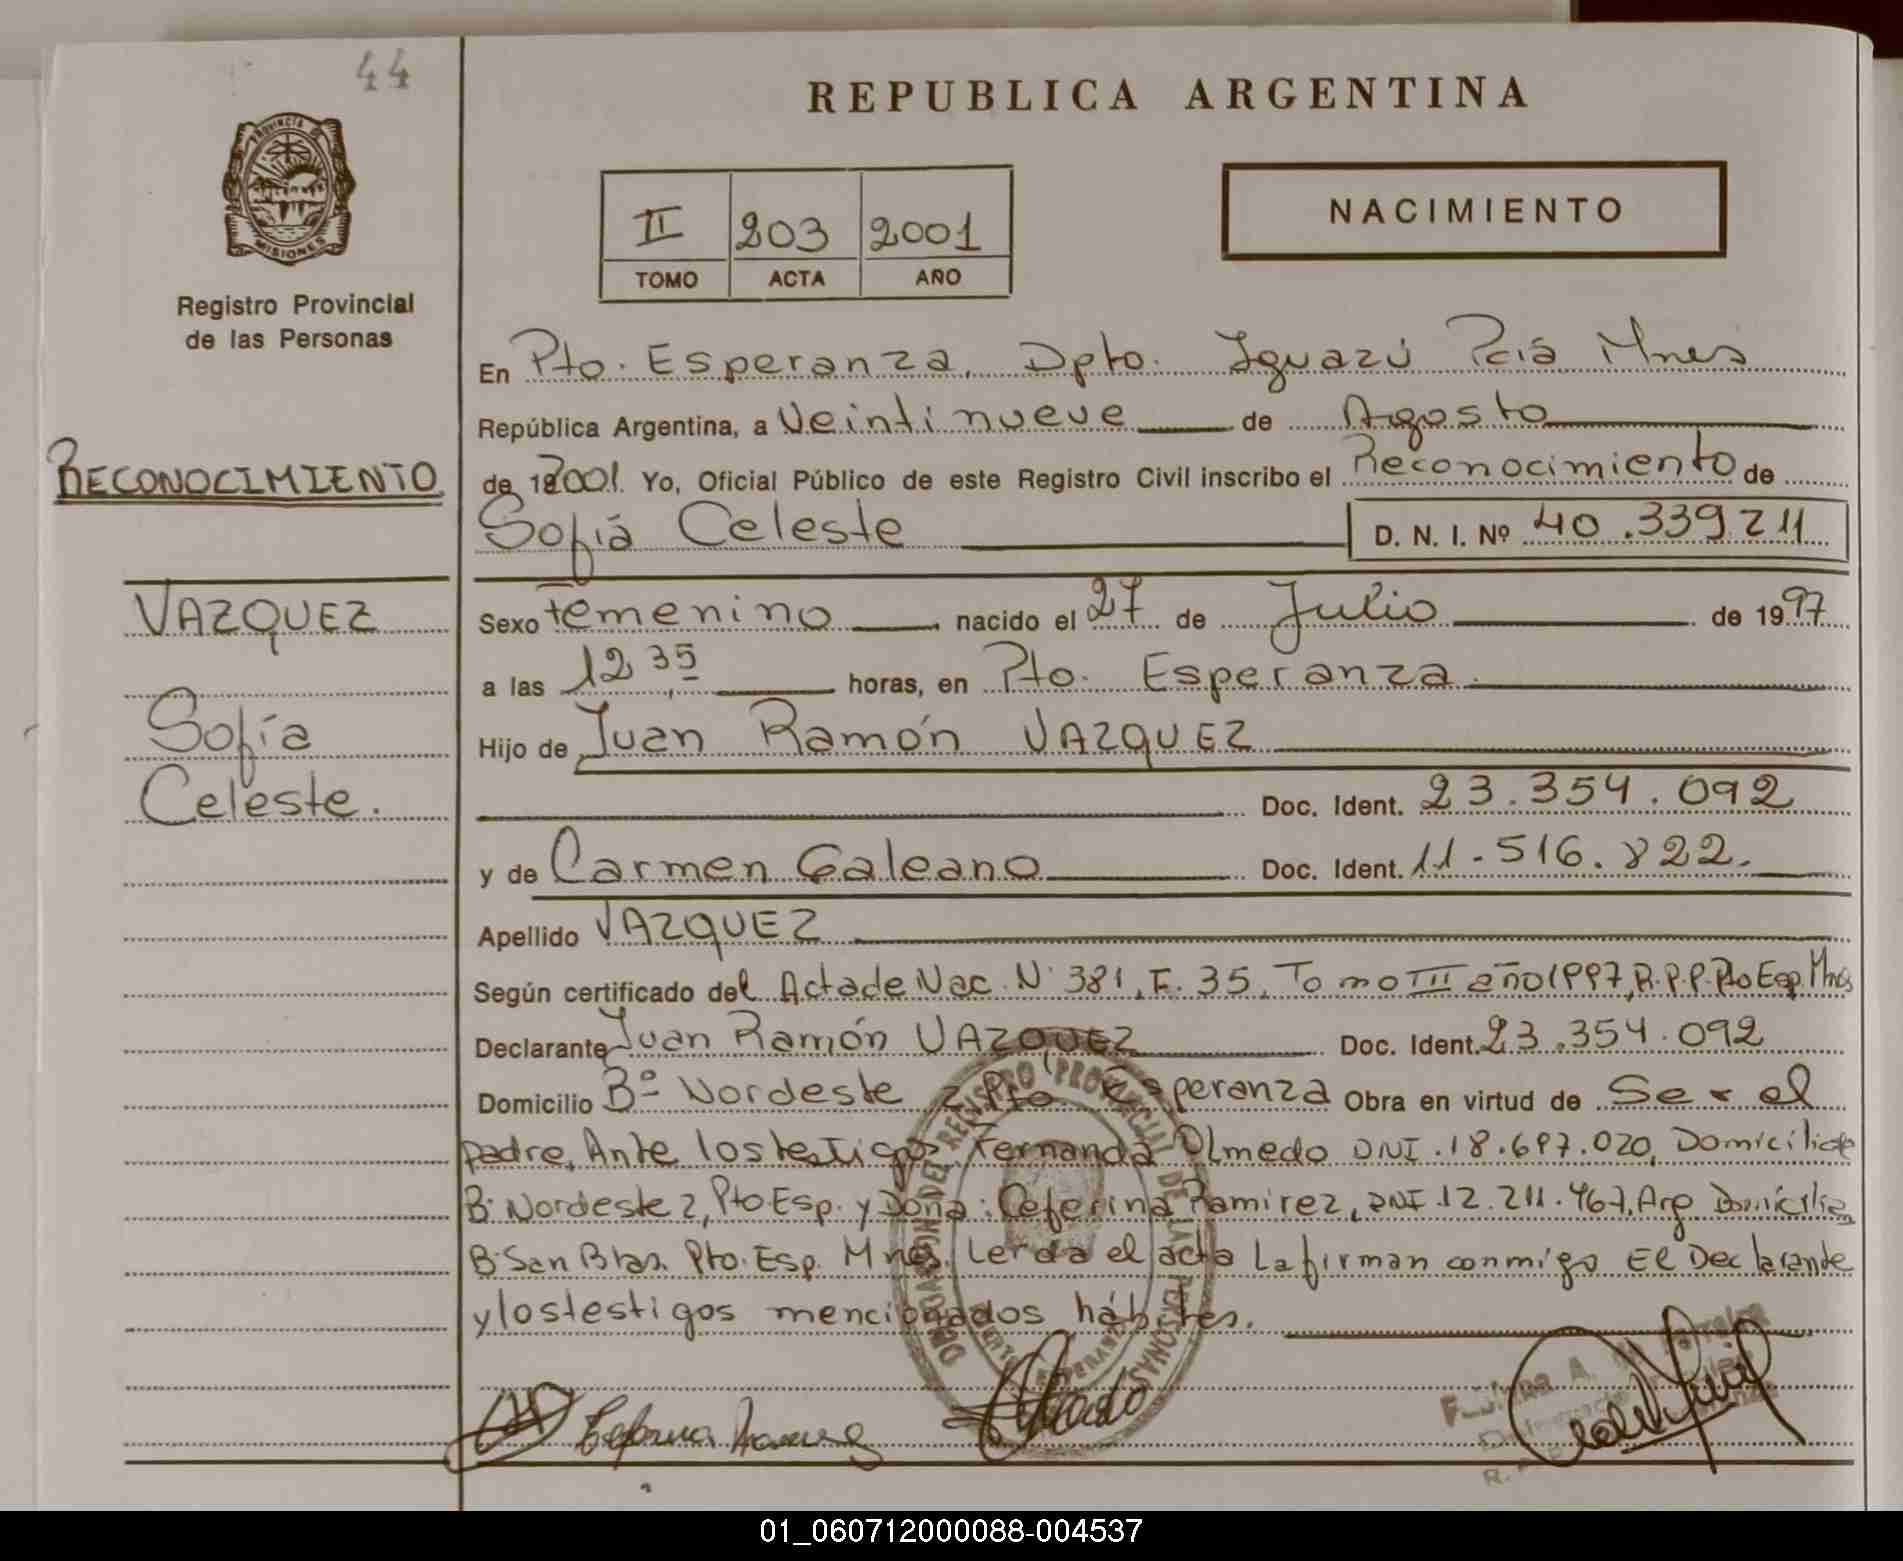 44
REPUBLICA ARGENTINA
PROVINCIA DE
MISIONES
Registro Provincial
de las Personas
II 203 2001
TOMO ACTA AÑO
NACIMIENTO
En Pto. Esperanza, Dpto. Iguazú Pciá Mnes
República Argentina, a Veintinueve de Agosto
RECONOCIMIENTO
de 2001. Yo, Oficial Público de este Registro Civil inscribo el Reconocimiento de
Sofiá Celeste D. N. I. Nº 40.339.211
VAZQUEZ
Sofía
Celeste.
Sexo Femenino nacido el 27 de Julio de 1997
a las 12,35 horas, en Pto. Esperanza.
Hijo de Juan Ramón VAZQUEZ
Doc. Ident. 23.354.092
y de Carmen Galeano Doc. Ident. 11.516.822.
Apellido VAZQUEZ
Según certificado del Acta de Nac. N° 381, F. 35, Tomo III año 1997, R.P.P. Pto Esp. Mnes
Declarante Juan Ramón VAZQUEZ Doc. Ident. 23.354.092
Domicilio Bº Nordeste 2 Pto Esperanza Obra en virtud de Ser el
padre, Ante los testigos, Fernanda Olmedo DNI. 18.697.020, Domicilida
B° Nordeste 2, Pto Esp. y Doña: Ceferina Ramirez, DNI 12.211.467, Arg Domicilia
B° San Blas. Pto. Esp. Mnes. Leida el acta La firman conmigo El Declarante
y los testigos mencionados hábiles.
DIRECCION DEL REGISTRO PROVINCIAL DE LAS PERSONAS
01_060712000088-004537